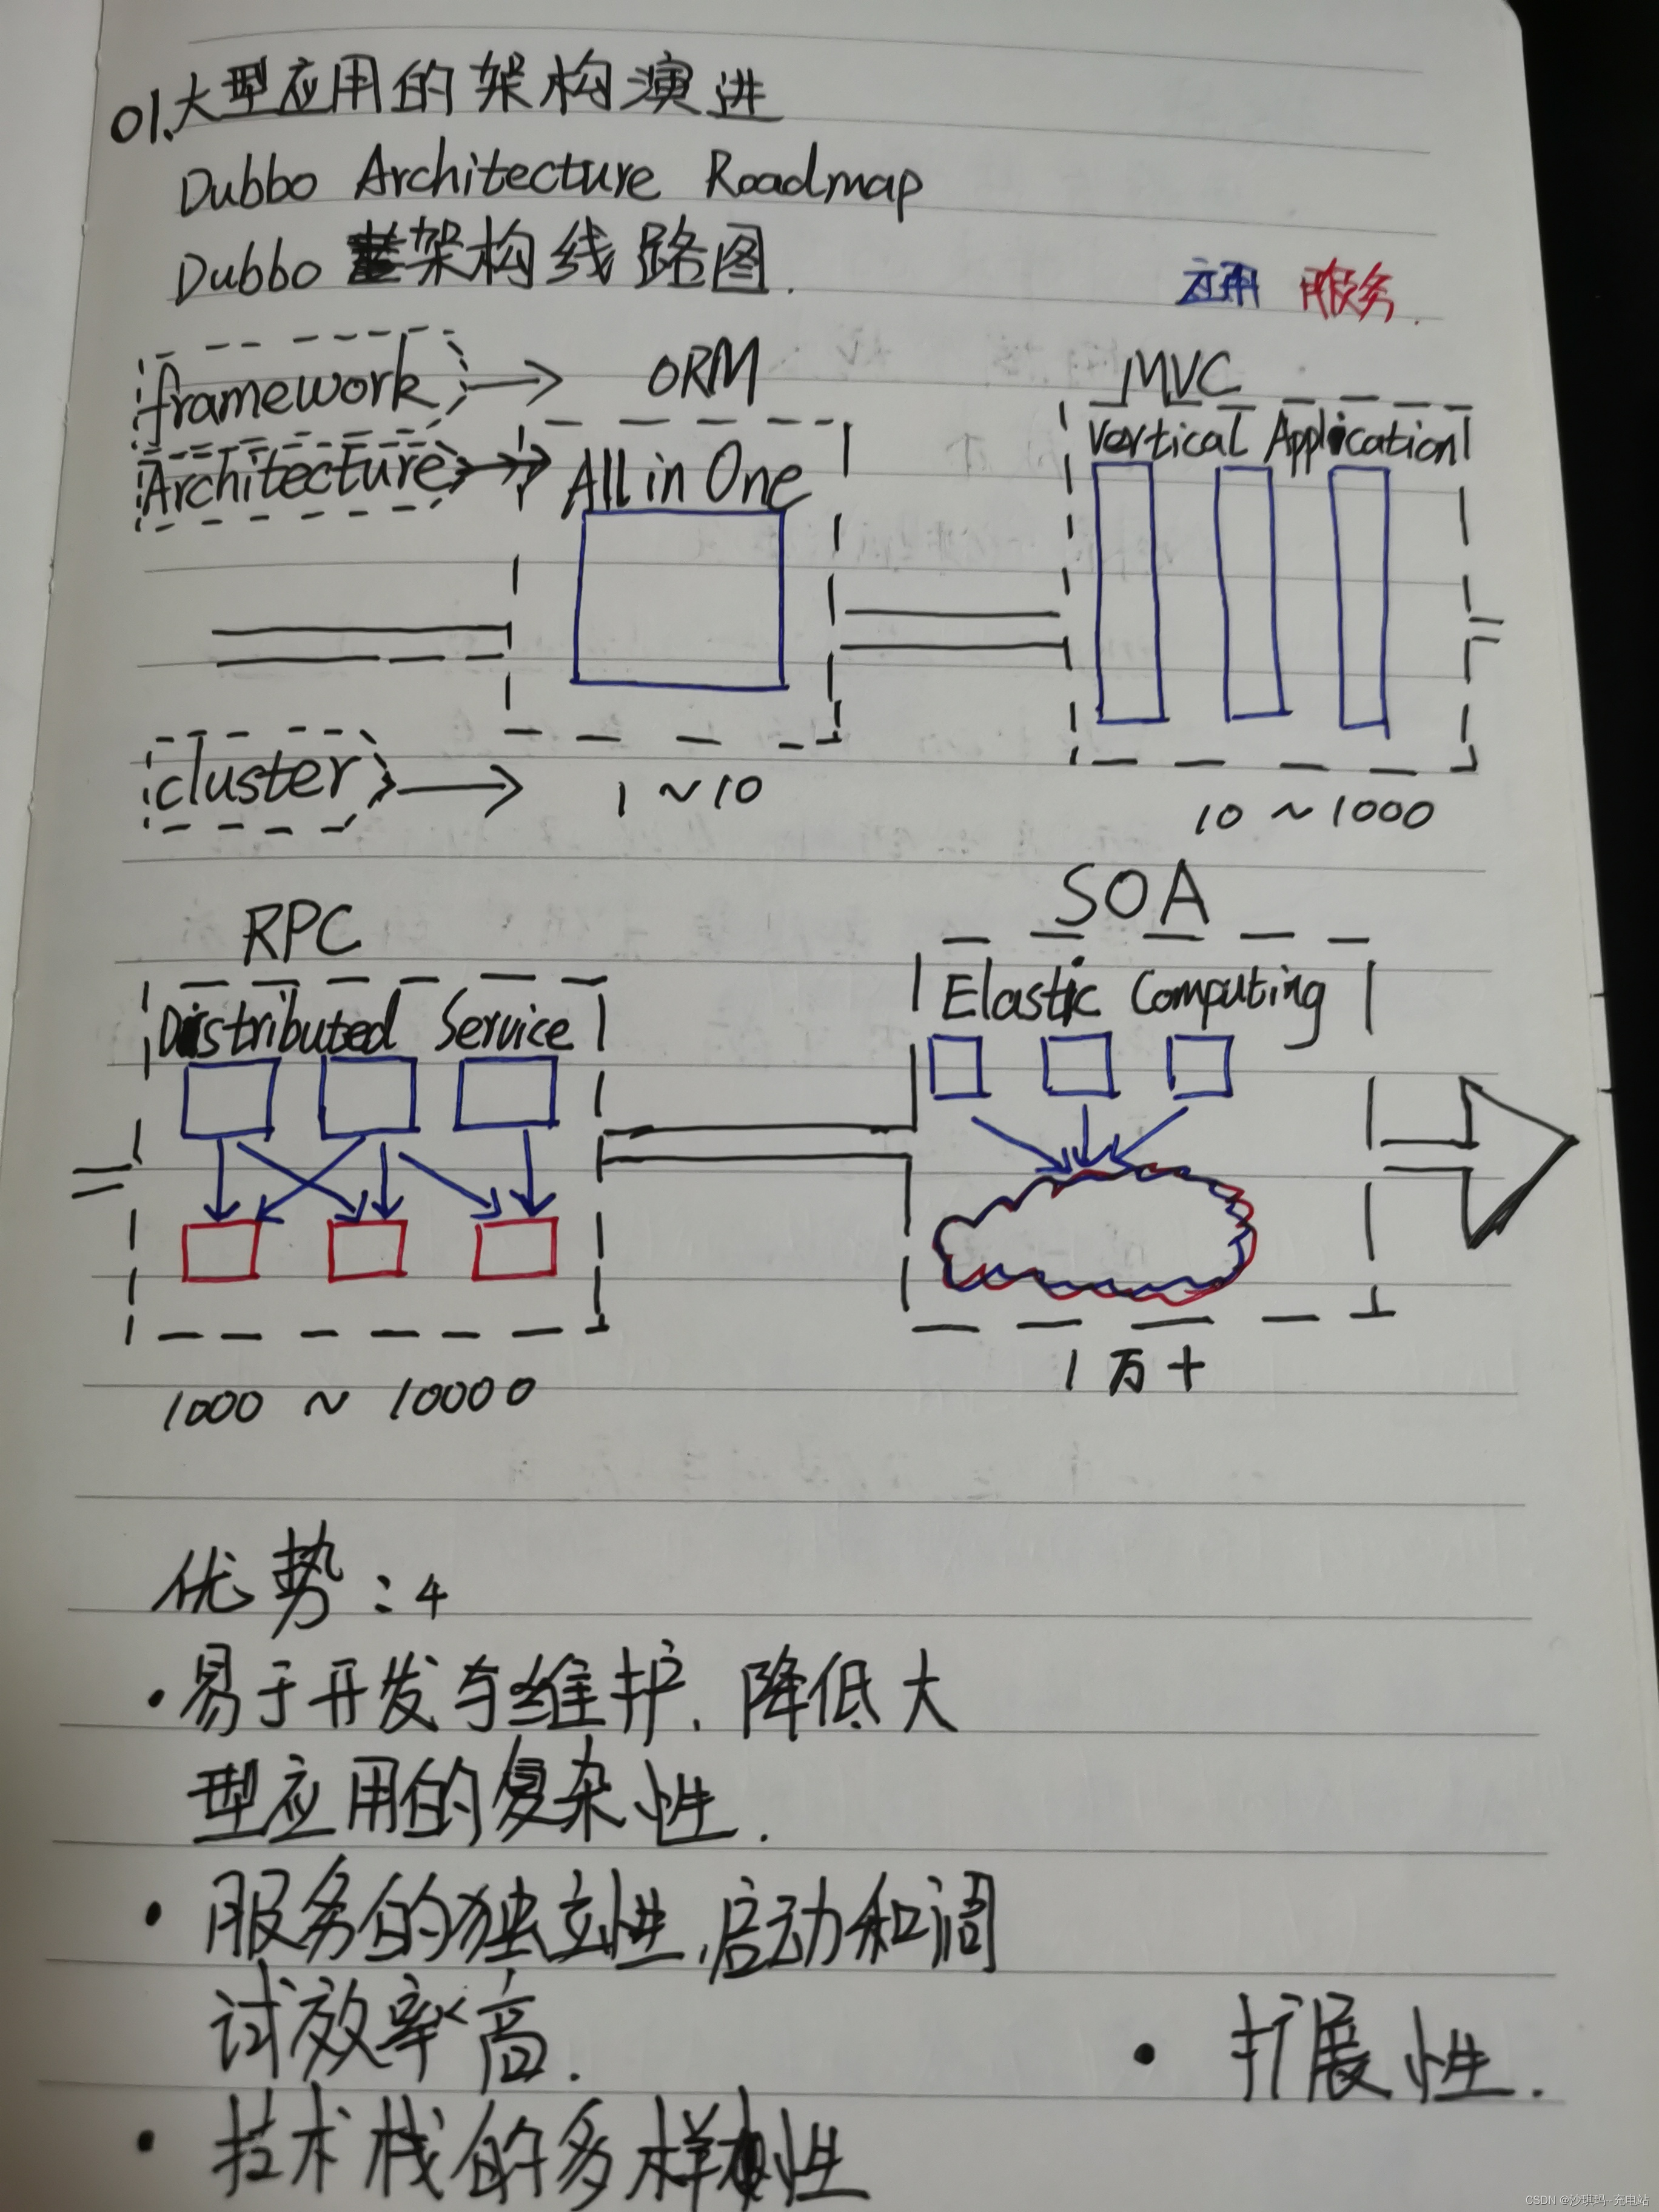 01.大型应用的架构演进
Dubbo Architecture Roadmap
Dubbo 架构线路图.
应用 服务.
framework ORM MVC
Architecture All in One Vertical Application
cluster 1 ~ 10 10 ~ 1000
RPC SOA
Distributed Service Elastic Computing
1000 ~ 10000 1万+
优势:4
·易于开发与维护,降低大
型应用的复杂性.
·服务的独立性,启动和调
试效率高.
·扩展性.
·技术栈的多样性
CSDN @沙琪玛-充电站